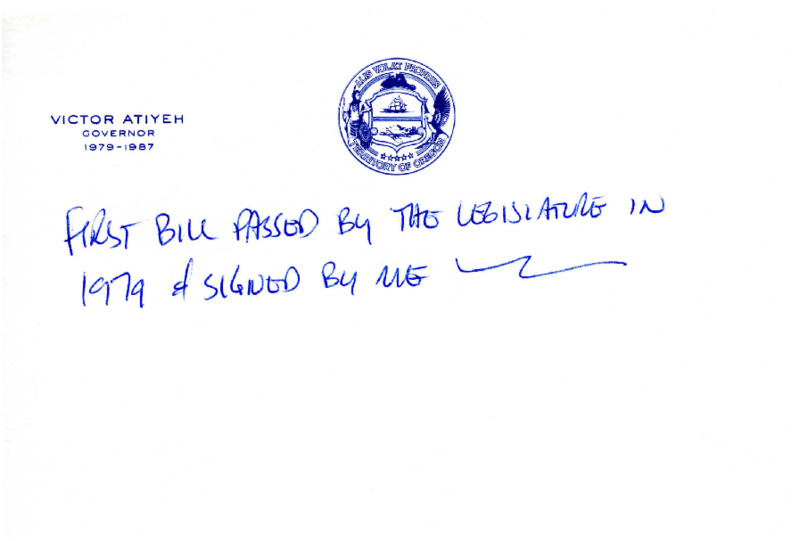 ALIS VOLAT PROPRIIS
TERRITORY OF OREGON
VICTOR ATIYEH
GOVERNOR
1979-1987
FIRST BILL PASSED BY THE LEGISLATURE IN
1979 & SIGNED BY ME